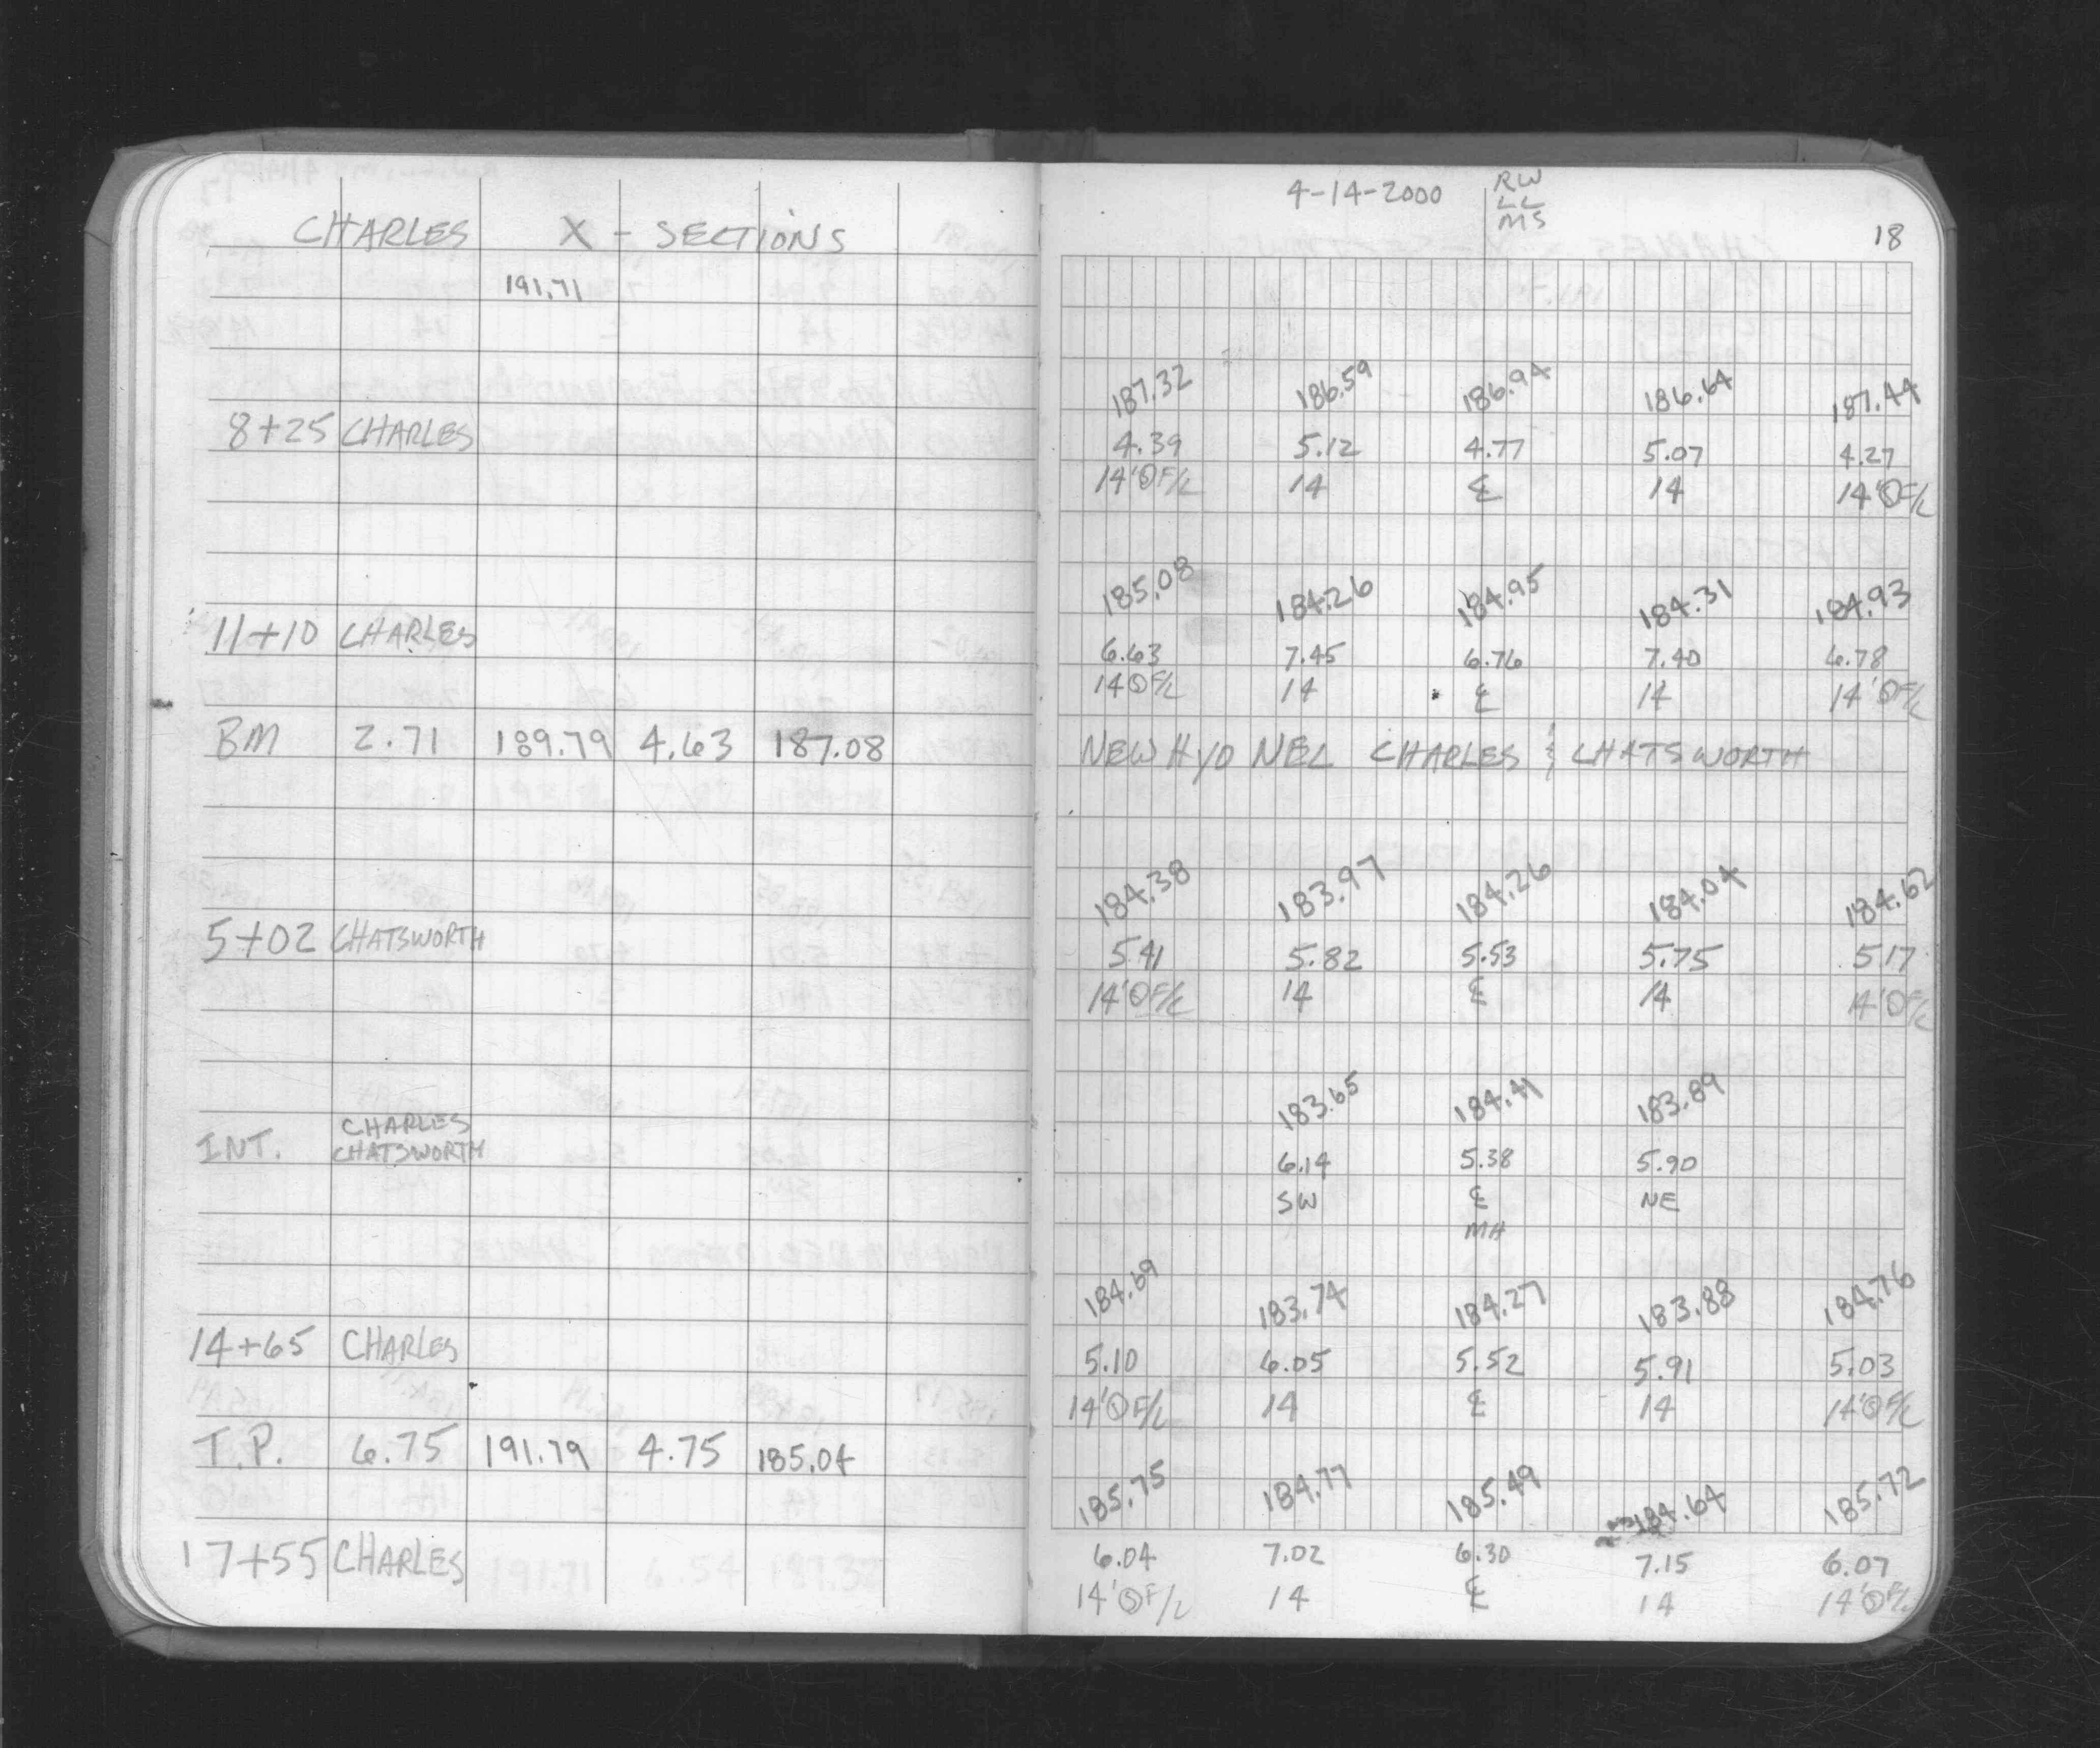 CHARLES X - SECTIONS
191.71
8+25 CHARLES
11+10 CHARLES
BM 2.71 189.79 4.63 187.08
5+02 CHATSWORTH
INT. CHARLES
CHATSWORTH
14+65 CHARLES
T.P. 6.75 191.79 4.75 185.04
17+55 CHARLES
4-14-2000 RW
LL
MS
18
187.32 186.59 186.94 186.64 187.44
4.39 5.12 4.77 5.07 4.27
14'ⓄF/L 14 ℄ 14 14'ⓄF/L
185.08 184.26 184.95 184.31 184.93
6.63 7.45 6.76 7.40 6.78
14ⓄF/L 14 ℄ 14 14'ⓄF/L
NEW HYD NEC CHARLES & CHATSWORTH
184.38 183.97 184.26 184.04 184.62
5.41 5.82 5.53 5.75 5.17
14'ⓄF/L 14 ℄ 14 14'ⓄF/L
183.65 184.41 183.89
6.14 5.38 5.90
SW ℄ NE
MH
184.69 183.74 184.27 183.88 184.76
5.10 6.05 5.52 5.91 5.03
14'ⓄF/L 14 ℄ 14 14'ⓄF/L
185.75 184.77 185.49 184.64 185.72
6.04 7.02 6.30 7.15 6.07
14'ⓄF/L 14 ℄ 14 14'ⓄF/L